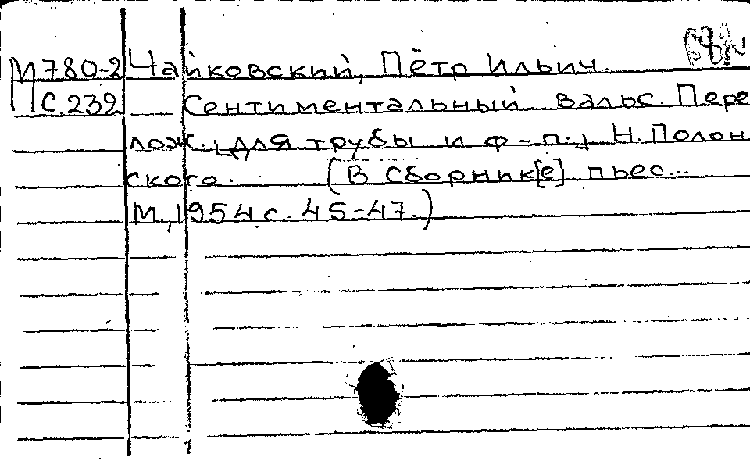 М780-2 Чайковский, Пётр Ильич.
ПС.239 Сентиментальный вальс. Пере
лож. [для трубы и ф-п.] Н. Полон
ского. (В Сборник[е] пьес...
М., 1954 с. 45-47.)